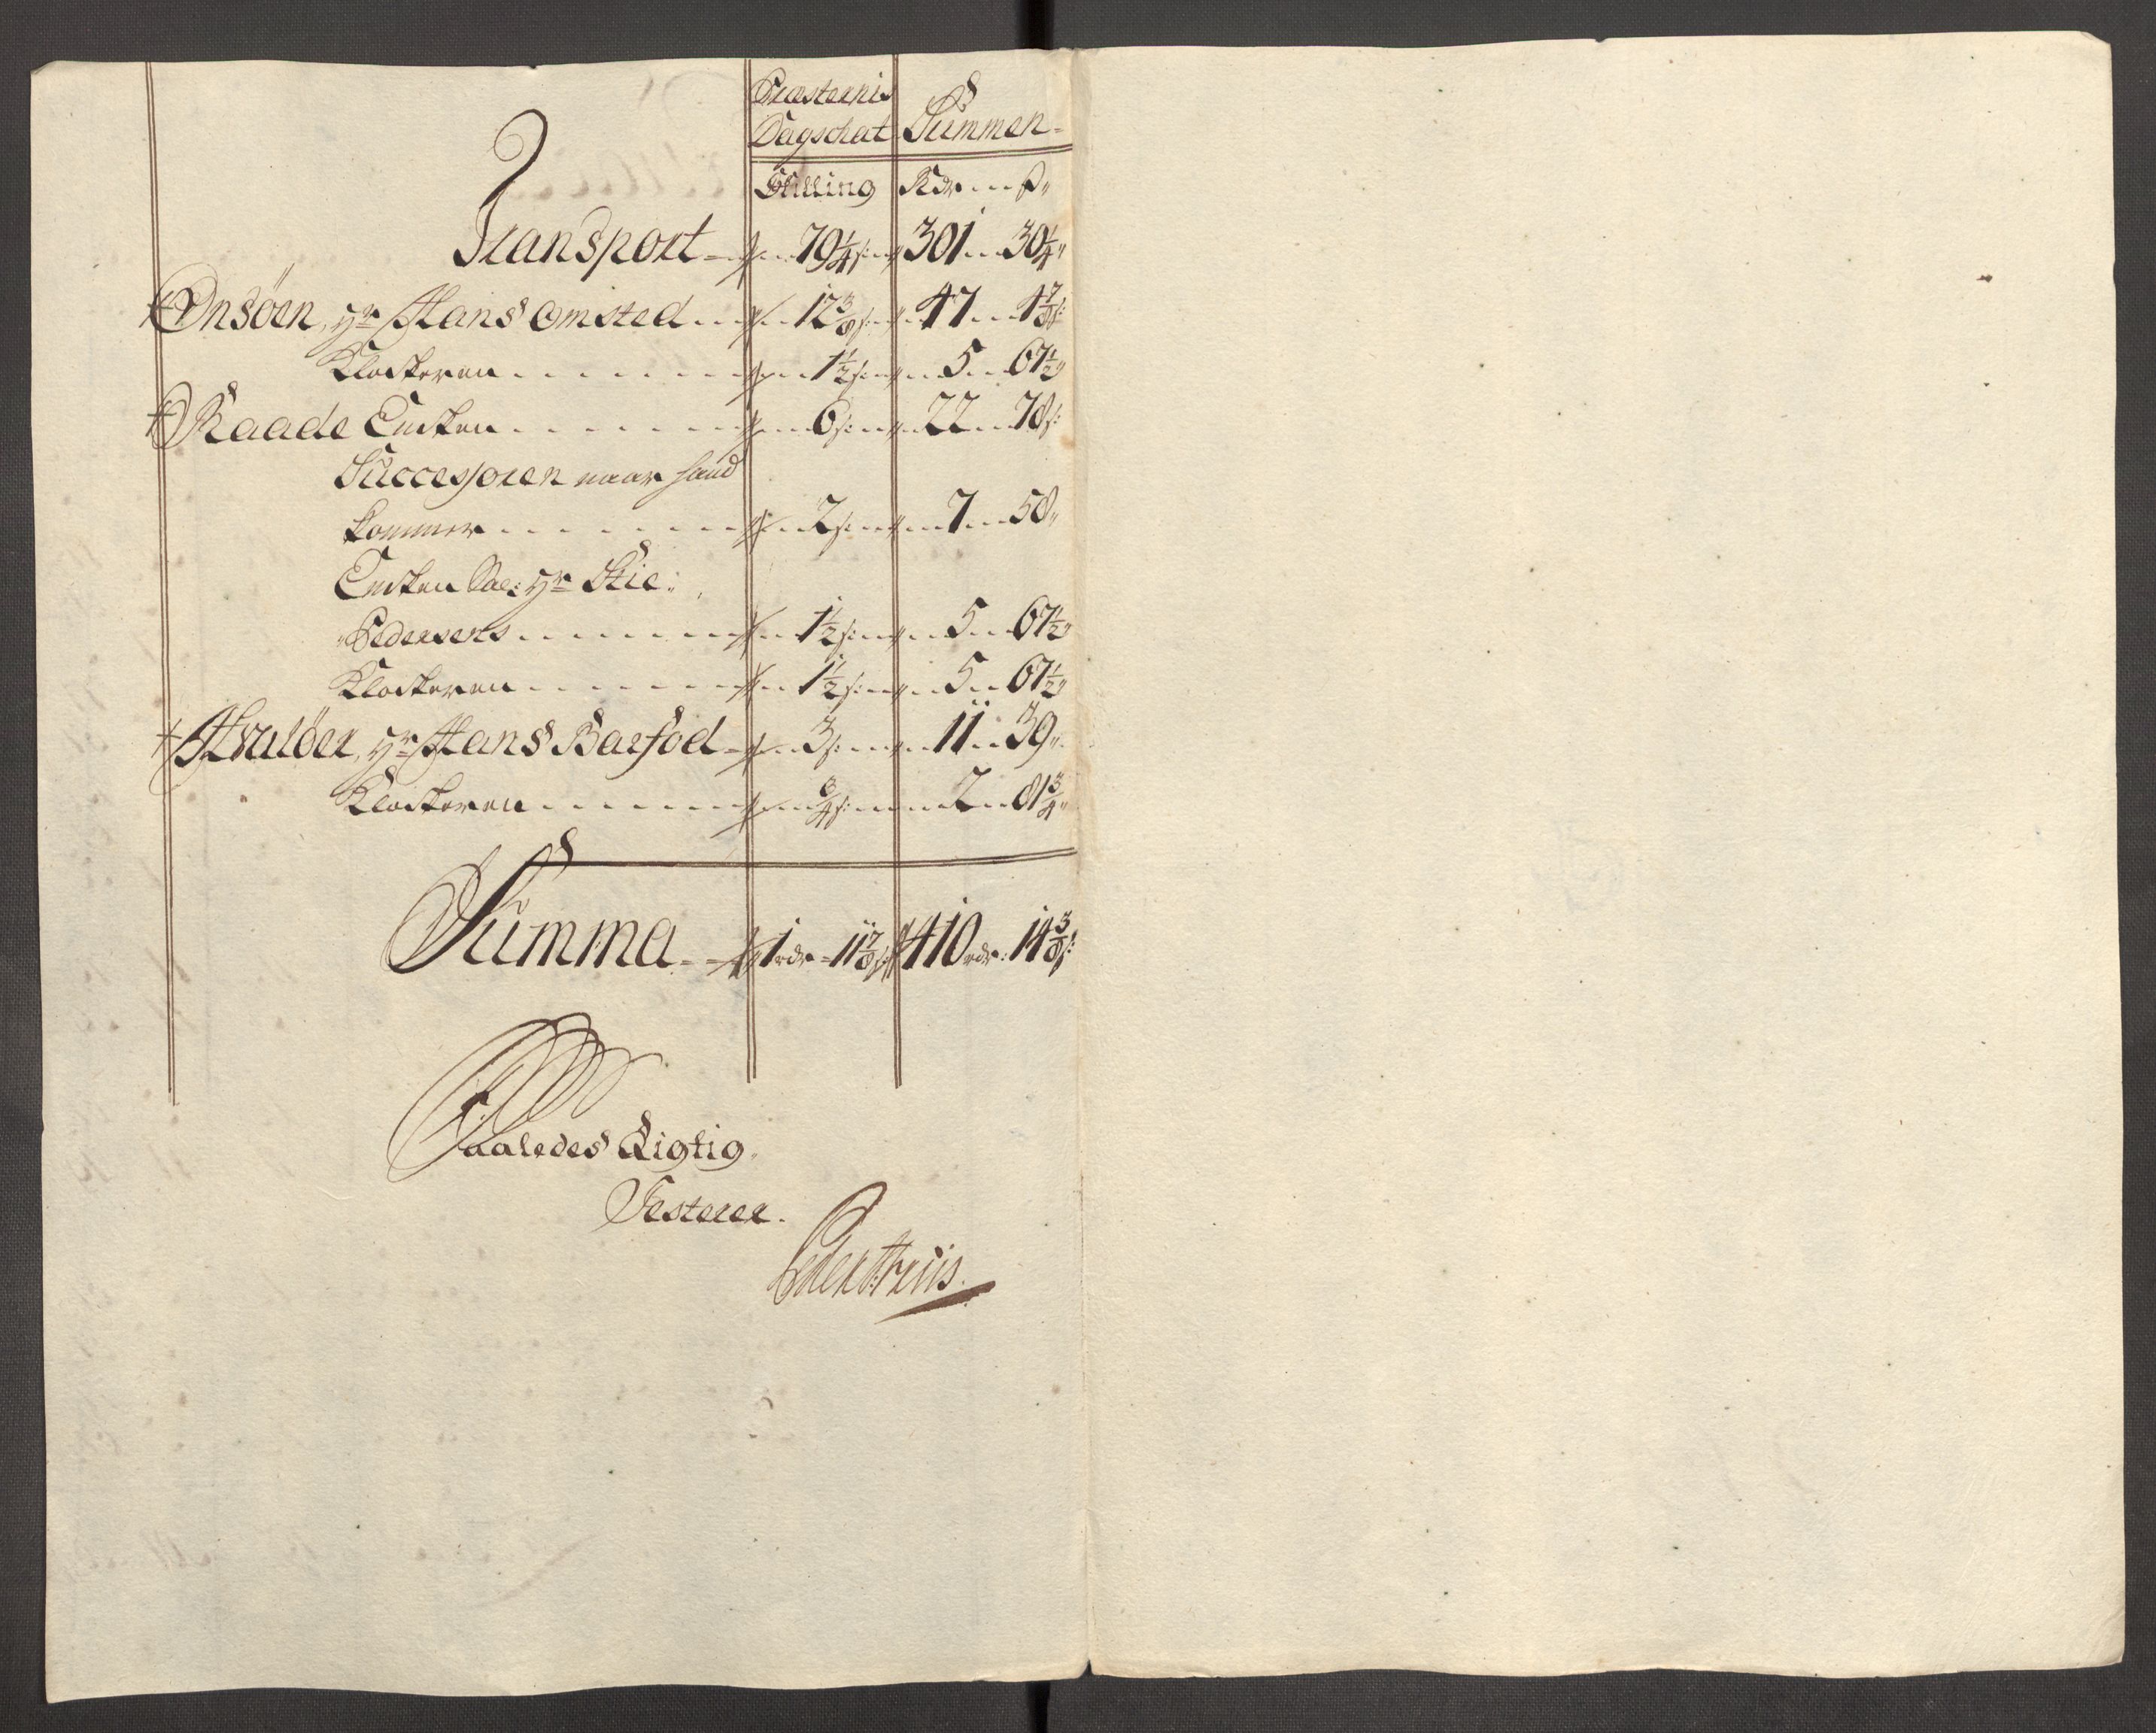 Præsternis
Dagschat Summen
Skilling Rdr ß
Transport 79 1/4 ß 301 30 1/4
Onsöen, Hr Hans Omsted 12 3/8 ß 47 4 7/8 ß
Klockeren 1 1/2 ß 5 67 1/2
Raade Encken 6 ß 22 78 ß
Successoren naar hand
kommer 2 ß 7 58
Encken Sal: Hr Stie:
Pedersens 1 1/2 ß 5 67 1/2
Klockeren 1 1/2 ß 5 67 1/2
Hvalöer, Hr Hans Barfod 3 ß 11 39
Klockeren 3/4 ß 2 81 3/4
Summa 1 rdr 11 7/8 ß 410 rdr: 14 3/8 ß:
Saaledes Rigtig
Testerer.